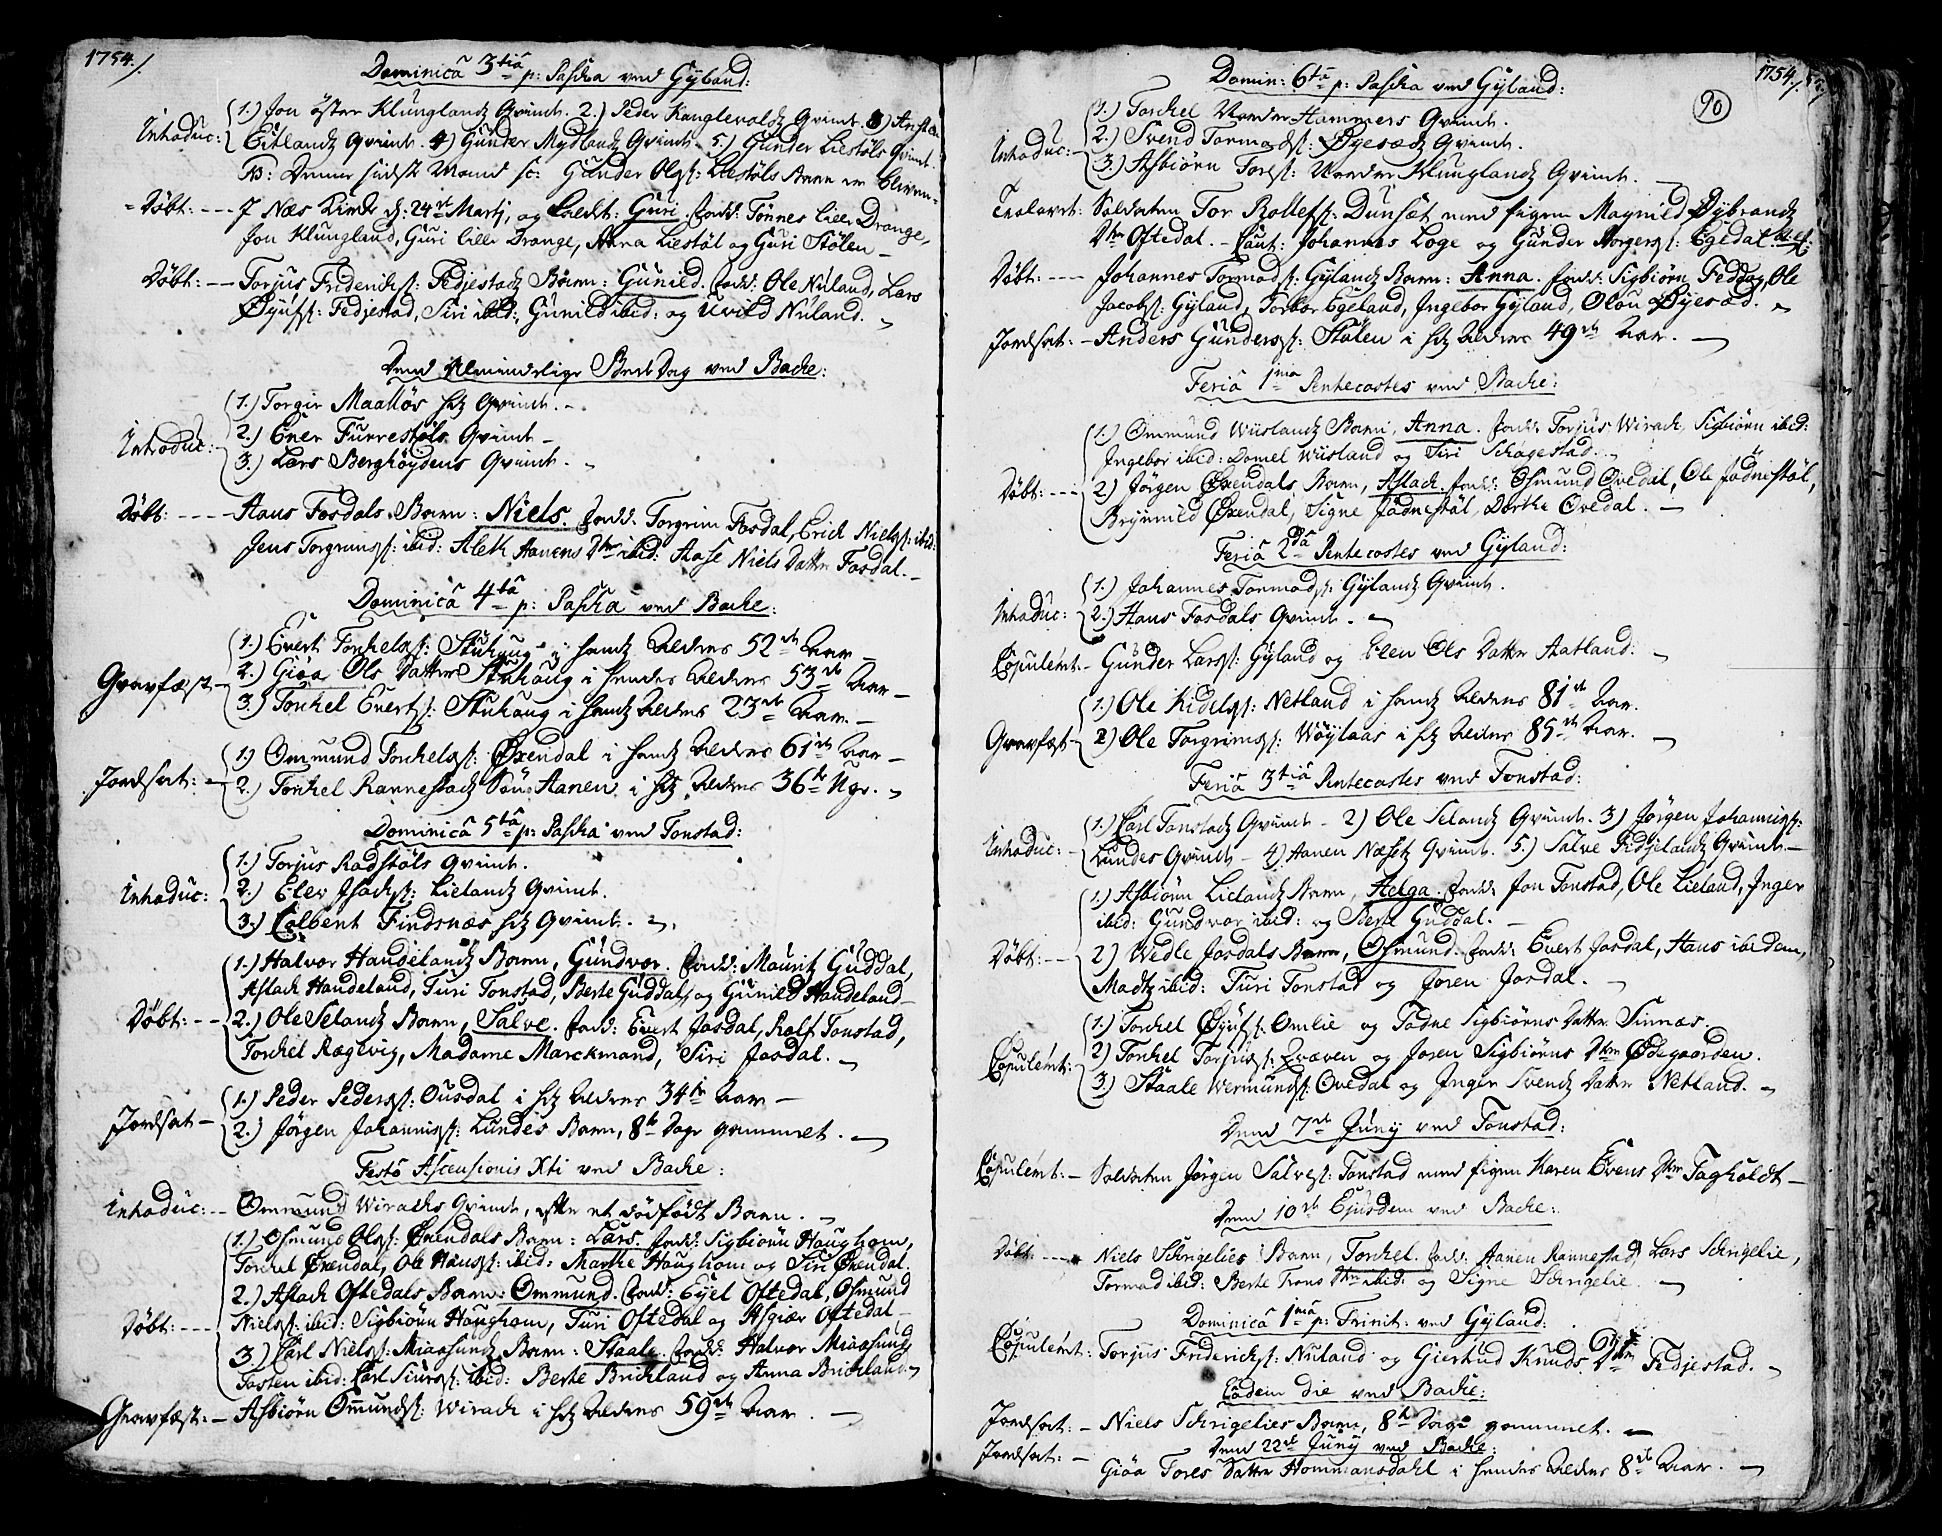 1754.
Dominica 3tia p: Pascha ved Gÿland:
Introduc: 1.) Jon öster Klunglandz Qvinde. 2.) Peder Kanglevoldz Qvinde. 3) Ansten
Eitlandz Qvinde. 4) Gunder Mydlandz Qvinde. 5.) Gunder Liestöls Qvinde.
NB: Denne sidste Mand sc: Gunder Ols: Liestöls Barn er bleven
Döbt: I Næs Kirke d: 24de Martj, og kaldet: Guri. Fadd: Tönnes lille Drange,
Jon Klungland, Guri lille Drange, Anna Liestöl og Guri Stölen
Döbt: Torjus Friderichs: Fedjestadz Barn: Gunild. Fadd: Ole Nuland, Lars
Öÿufs: Fedjestad, Siri ibid: Gunild ibid: og Uvild Nuland.
Dend Almindelige Bede Dag ved Backe:
Introduc: 1.) Torgier Maalöes hs Qvinde.
2.) Ener Furrestöls Qvinde
3.) Lars Berghöydens Qvinde.
Döbt: Hans Fosdals Barn: Niels. Fadd: Torgrim Fosdal, Erich Niels: ibid:
Jens Torgrims: ibid: Aleth Aanens Dtr ibid: Aase Niels Datter Fosdal.
Dominica 4ta p: Pascha ved Backe:
Gravfæst 1.) Evert Torkels: Stuhaug i hands Alders 52de Aar
2.) Giöa Ols Datter Stuhaug i hendes Alders 53de Aar
3.) Torkel Everts: Stuhaug i hands Alders 23de Aar.
Jordsat: 1.) Ommund Torkels: Öxendal i hands Alders 61de Aar
2.) Torkel Rannestadz Sön Aanen i hs Alders 36te Uge.
Dominica 5ta p: Pascha ved Tonstad:
Introduc: 1.) Torjus Radstöls Qvinde.
2.) Elev Isachs: Lielandz Qvinde.
3.) Colbent Findsnæs hs Qvinde.
Döbt: 1.) Halvor Handelandz Barn, Gundvor. Fadd: Mauritz Guddal,
Aslach Handeland, Turi Tonstad, Berte Guddal, og Gunild Handeland
2.) Ole Selandz Barn, Salve. Fadd: Evert Josdal, Rolf Tonstad,
Torkel Rægevig, Madame Marckmand, Siri Josdal.
Jordsat 1.) Peder Peders: Ousdal i hs Alders 34te Aar
2.) Jörgen Johannis: Lundes Barn, 8te Dage gammel.
Festo Ascensionis Xti ved Backe:
Introduc: Ommund Wirachs Qvinde, efter et dödfödt Barn.
Döbt: 1.) Osmund Ols: Öxendals Barn: Lars. Fadd: Sigbiörn Haughom,
Torkel Öxendal, Ole Hans: ibid: Marthe Haughom og Siri Öxendal.
2.) Aslach Oftedals Barn: Ommund. Fadd: Eÿel Oftedal, Osmund
Niels: ibid: Sigbiörn Haughom, Turi Oftedal og Asgier Oftedal
3.) Carl Niels: Miaasundz Barn: Staale. Fadd: Halvor Miaasund,
Tosten ibid: Carl Siurs: ibid: Berte Brickland og Anna Brickland
Gravfæst: Asbiörn Omunds: Wirach i hs Alders 59de Aar.
1754.
90
Domin: 6ta p: Pascha ved Gÿland:
Introduc: 1.) Torkel Nordre Hammers Qvinde.
2.) Svend Tormods: Öyesædz Qvinde.
3.) Asbiörn Tors: Nordre Klunglandz Qvinde.
Trolovet: Soldaten Tor Rollefs: Dunsæt med pigen Magnild Sÿbrandz
Dtr Oftedal. Caut: Johannes Loge og Gunder Borgers: Egedal
Döbt: Johannes Tormods: Gÿlandz Barn: Anna. Fadd: Sigbiörn Fedde, Ole
Jacobs: Gÿland, Torbor Egeland, Ingebor Gÿland, Olou Öyesæd.
Jordsat: Anders Gunders: Stölen i hs Alders 49de Aar.
Feria 1ma Pentecostes ved Backe:
Döbt: 1.) Ommund Wiislandz Barn, Anna. Fadd: Torjus Wirach, Sigbiörn ibid:
Ingebor ibid: Domel Wiisland og Siri Schagestad.
2) Jörgen Öxendals Barn, Aslach. Fadd: Osmund Ovedal, Ole Jödnestöl,
Brynnild Öxendal, Signe Jödnestöl, Dorthe Ovedal.
Feria 2da Pentecostes ved Gÿland:
Introduc: 1.) Johannes Tormods: Gÿlandz Qvinde.
2.) Hans Fosdals Qvinde.
Copuleret: Gunder Lars: Gÿland og Elen Ols Datter Aatland.
Gravfæst 1.) Ole Kidels: Netland i hands Alders 81de Aar.
2) Ole Torgrims: Wöylaas i hs Alders 85de Aar.
Feria 3tia Pentecostes ved Tonstad:
Introduc: 1.) Carl Tonstadz Qvinde 2) Ole Selandz Qvinde. 3) Jörgen Johannis:
Lundes Qvinde 4) Aanen Næsetz Qvinde. 5.) Salve Fidjelandz Qvinde
Döbt: 1.) Asbiörn Lielandz Barn, Helga. Fadd: Jon Tonstad, Ole Lieland, Inger
ibid: Gundvor ibid: og Berte Guddal.
2) Wedle Josdals Barn, Osmund. Fadd: Evert Josdal, Hans ibidem,
Madtz ibid: Turi Tonstad og Joren Josdal.
Copuleret: 1.) Torkel Öÿufs: Omlie og Todne Sigbiörns Datter Sinnæs.
2) Torkel Torjus: Qvæven og Joren Sigbiörns Dtr Ödegaarden.
3) Staale Wermunds: Ovedal og Inger Svends Datter Netland.
Dend 7de Junÿ ved Tonstad:
Copuleret: Soldaten Jörgen Salves: Tonstad med pigen Karen Evens Dtr Tagholdt
Dend 10de Ejusdem ved Backe:
Döbt: Niels Schrigelies Barn, Torkel. Fadd: Aanen Rannestad, Lars Schrigelie,
Tormod ibid: Berte Trons Dtr ibid: og Signe Schrigelie.
Dominica 1ma p: Trinit: ved Gÿland:
Copuleret: Torjus Friderichs: Nuland og Giertrud Knuds Dtr Fedjestad.
Eodem die ved Backe:
Jordsat: Niels Schrigelies Barn, 8te Dage gammel.
Dend 22de Junÿ ved Backe:
Jordsat: Giöa Tores Datter Hommansdahl i hendes Alders 8de Aar.